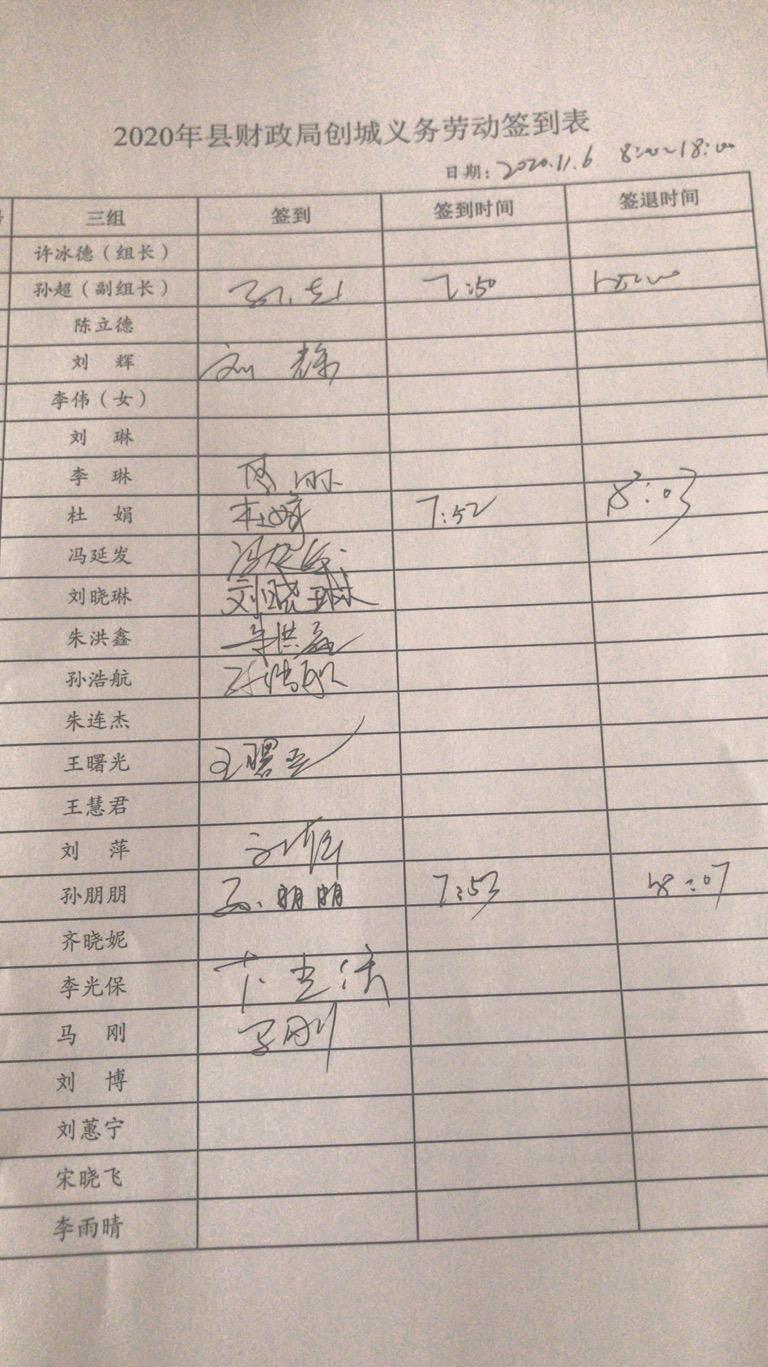 2020年县财政局创城义务劳动签到表
日期：2020.11.6 8:00~18:00
三组 签到 签到时间 签退时间
许冰德（组长）
孙超（副组长） 7:50
陈立德
刘 辉 刘 辉
李伟（女）
刘 琳
李 琳
杜 娟 杜娟 7:52 18:03
冯延发 冯延发
刘晓琳 刘晓琳
朱洪鑫 朱洪鑫
孙浩航 孙浩航
朱连杰
王曙光 王曙光
王慧君
刘 萍 刘萍
孙朋朋 孙朋朋 7:53 18:07
齐晓妮
李光保
马 刚 马刚
刘 博
刘蕙宁
宋晓飞
李雨晴